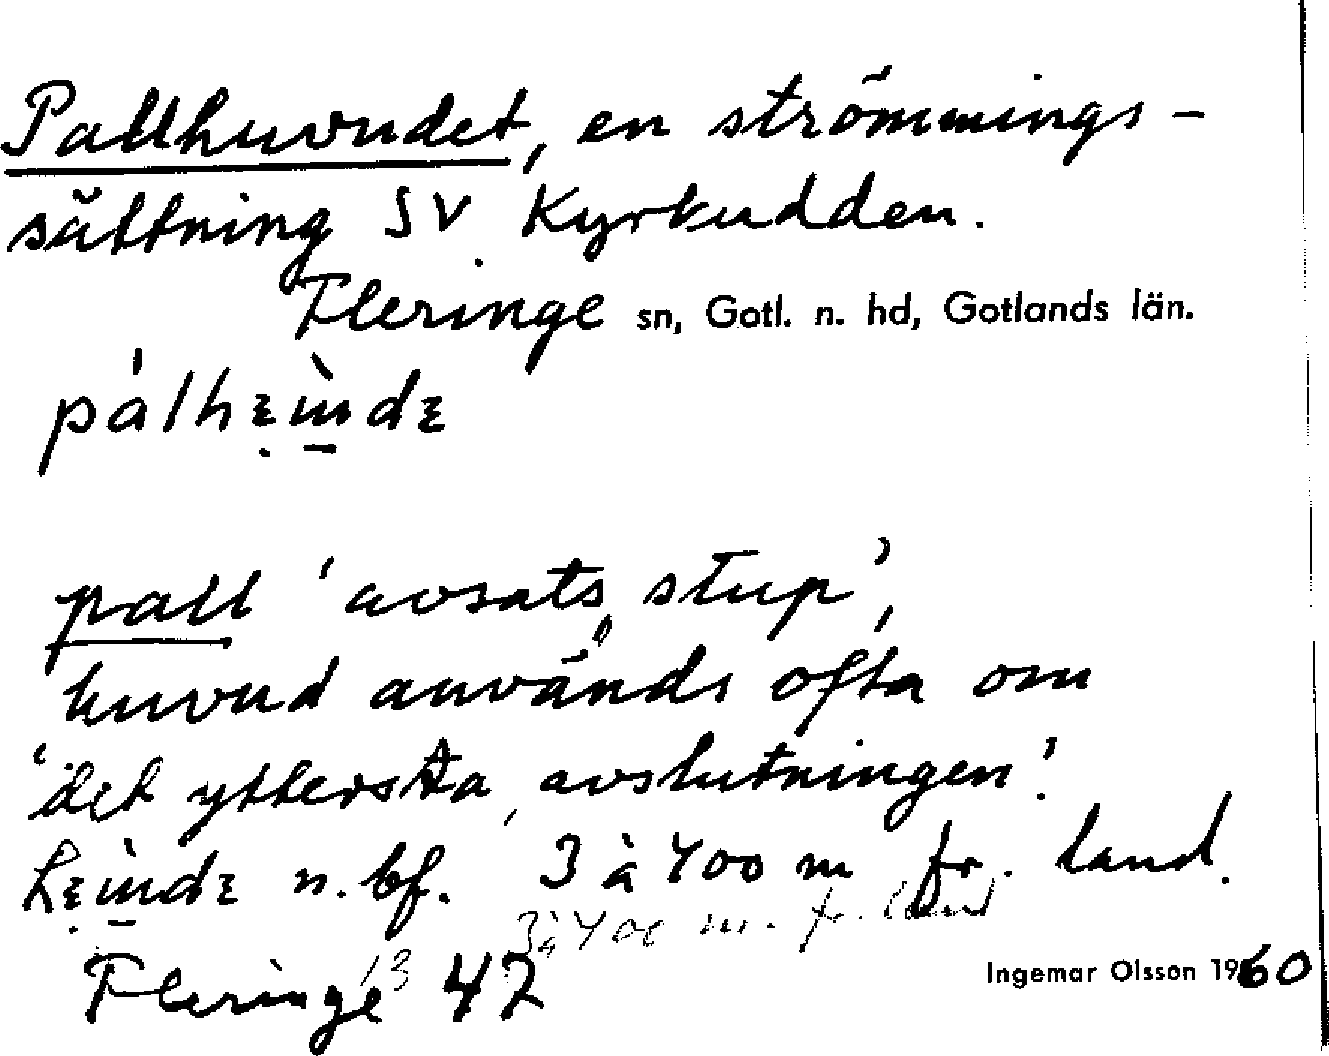 Pallhuvudet, en strömmings-
sättning SV Kyrkudden.
Fleringe sn, Gotl. n. hd, Gotlands län.
pall 'avsats, stup',
huvud används ofta om
'det yttersta, avslutningen'.
n. bf. 3 à 400 m fr. land.
3 à 400 m. fr. land
Fleringe 13 47
Ingemar Olsson 1960